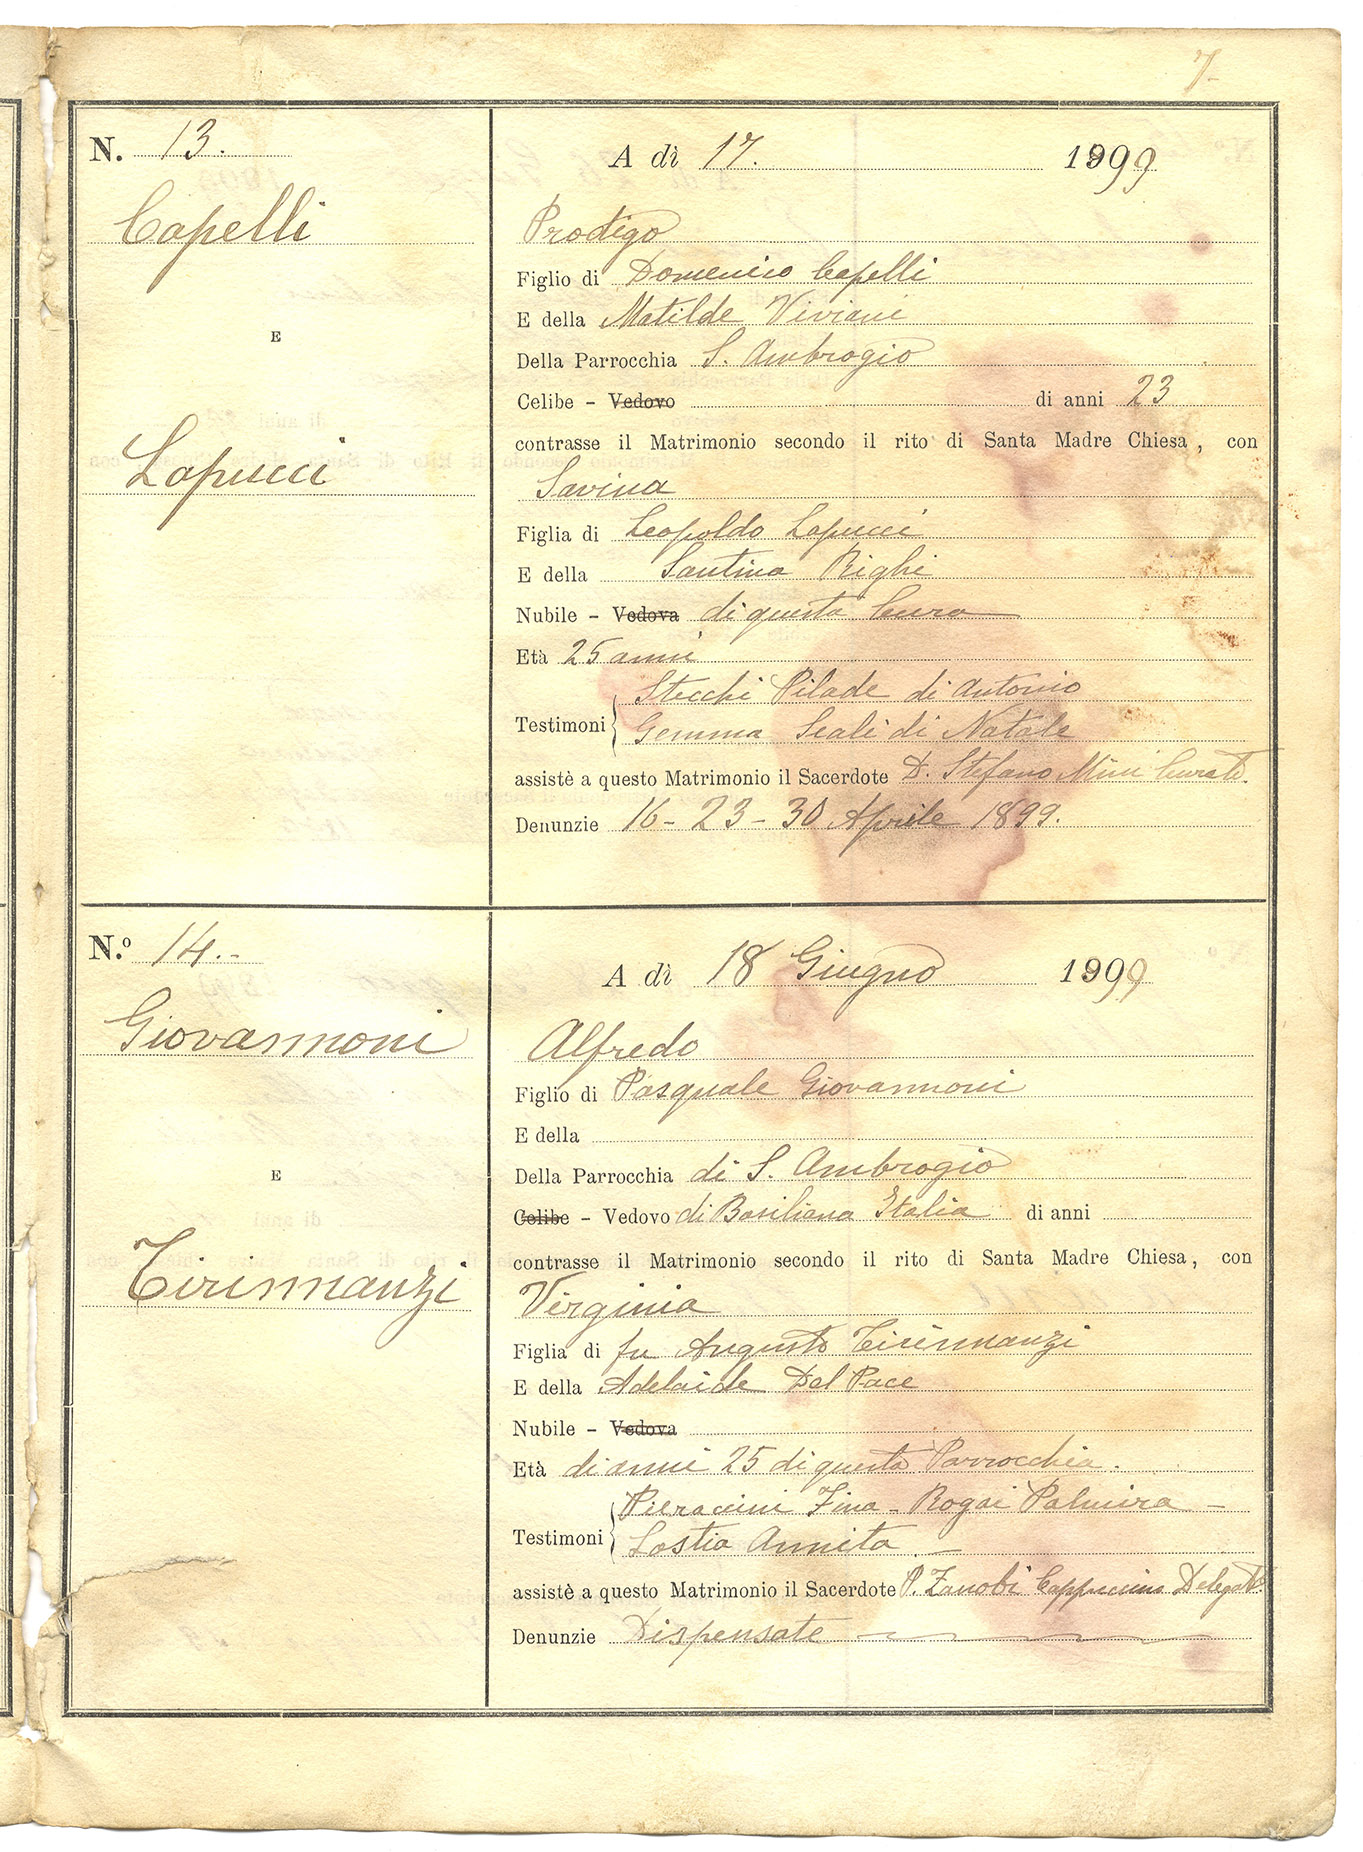 7
N. 13.
A dì 17. 1899
Capelli
E
Lapucci
Prodigo
Figlio di Domenico Capelli
E della Matilde Viviani
Della Parrocchia S. Ambrogio
Celibe - Vedovo di anni 23
contrasse il Matrimonio secondo il rito di Santa Madre Chiesa, con
Savina
Figlia di Leopoldo Lapucci
E della Santina Righi
Nubile - Vedova di questa Cura
Età 25 anni
Stecchi Pilade di Antonio
Testimoni
Gemma Scali di Natale
assistè a questo Matrimonio il Sacerdote D. Stefano Mini Curato.
Denunzie 16 - 23 - 30 Aprile 1899.
N.º 14.-
A dì 18 Giugno 1899
Giovannoni
E
Tirinnanzi
Alfredo
Figlio di Pasquale Giovannoni
E della
Della Parrocchia di S. Ambrogio
Celibe - Vedovo di Basiliana Italia di anni
contrasse il Matrimonio secondo il rito di Santa Madre Chiesa, con
Virginia
Figlia di fu Augusto Tirinnanzi
E della Adelaide Del Pace
Nubile - Vedova
Età di anni 25 di questa Parrocchia.
Pieraccini Fina - Rogai Palmira -
Testimoni
Annita -
assistè a questo Matrimonio il Sacerdote P. Zanobi Cappuccino Delegato.
Denunzie Dispensate